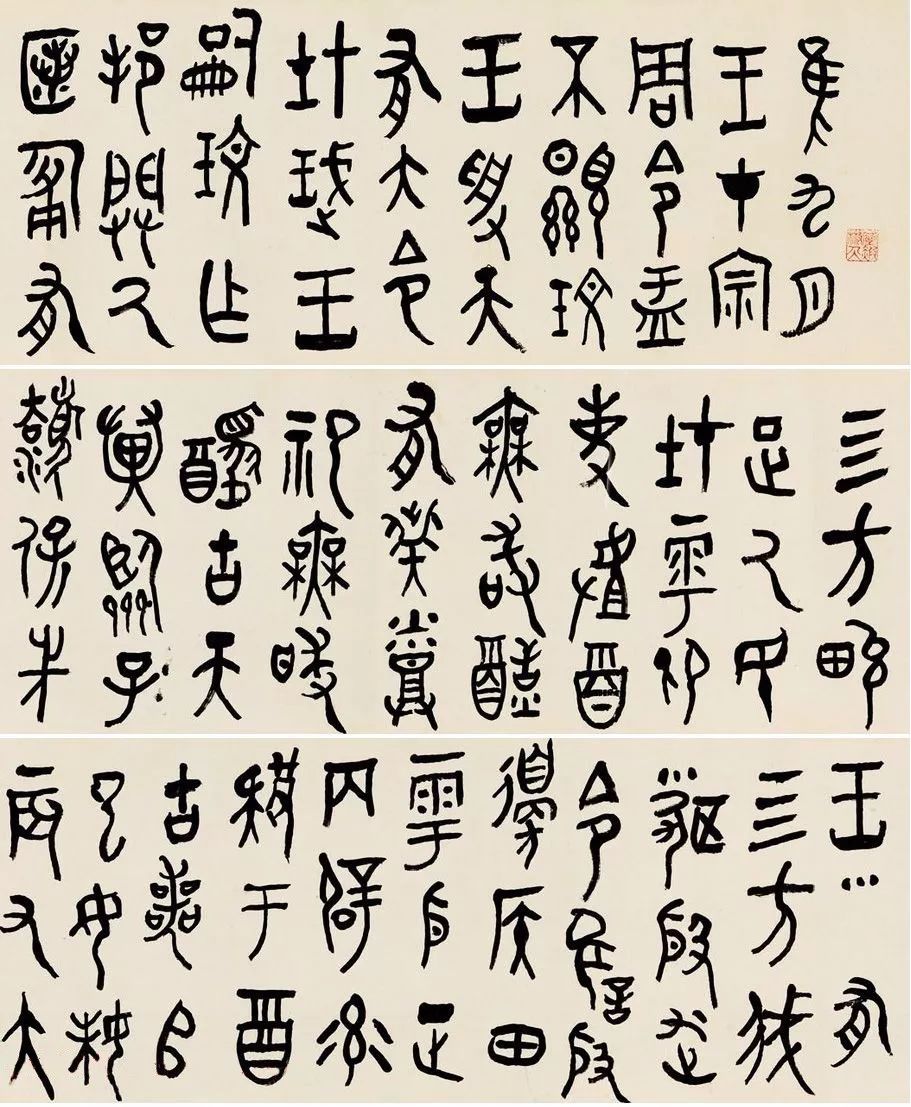 隹九月
王才宗
周令盂
不顯玟
王受天
有大令
在珷王
嗣玟乍
邦闢氒
匿匍有
四方畯
正氒民
在雩御
事𠭯酉
無敢酖
有祡蒸
祀無敢
醻古天
異臨子
灋保先
王有
四方我
聞殷述
令隹殷
邊侯田
雩殷正
百辟率
肄于酉
古喪𠂤
已女妹
辰又大